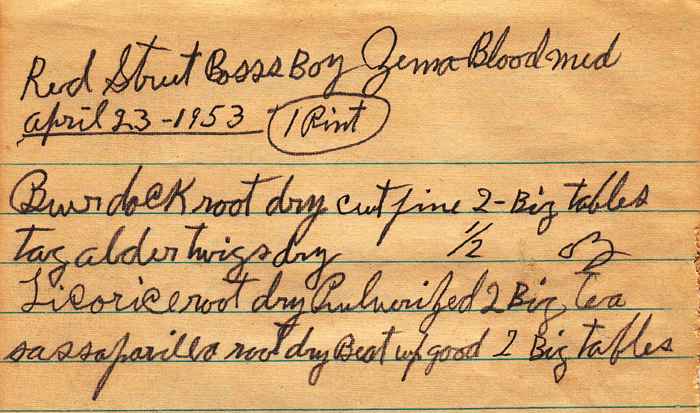 Red Street Bosss Boy Zema Blood med
april 23-1953 1 Pint
Burdock root dry cut fine 2-Big tables
tag alder twigs dry 1/2 oz
Licorice root dry Pulverized 2 Big tea
sassaparilla root dry Beat up good 2 Big tables